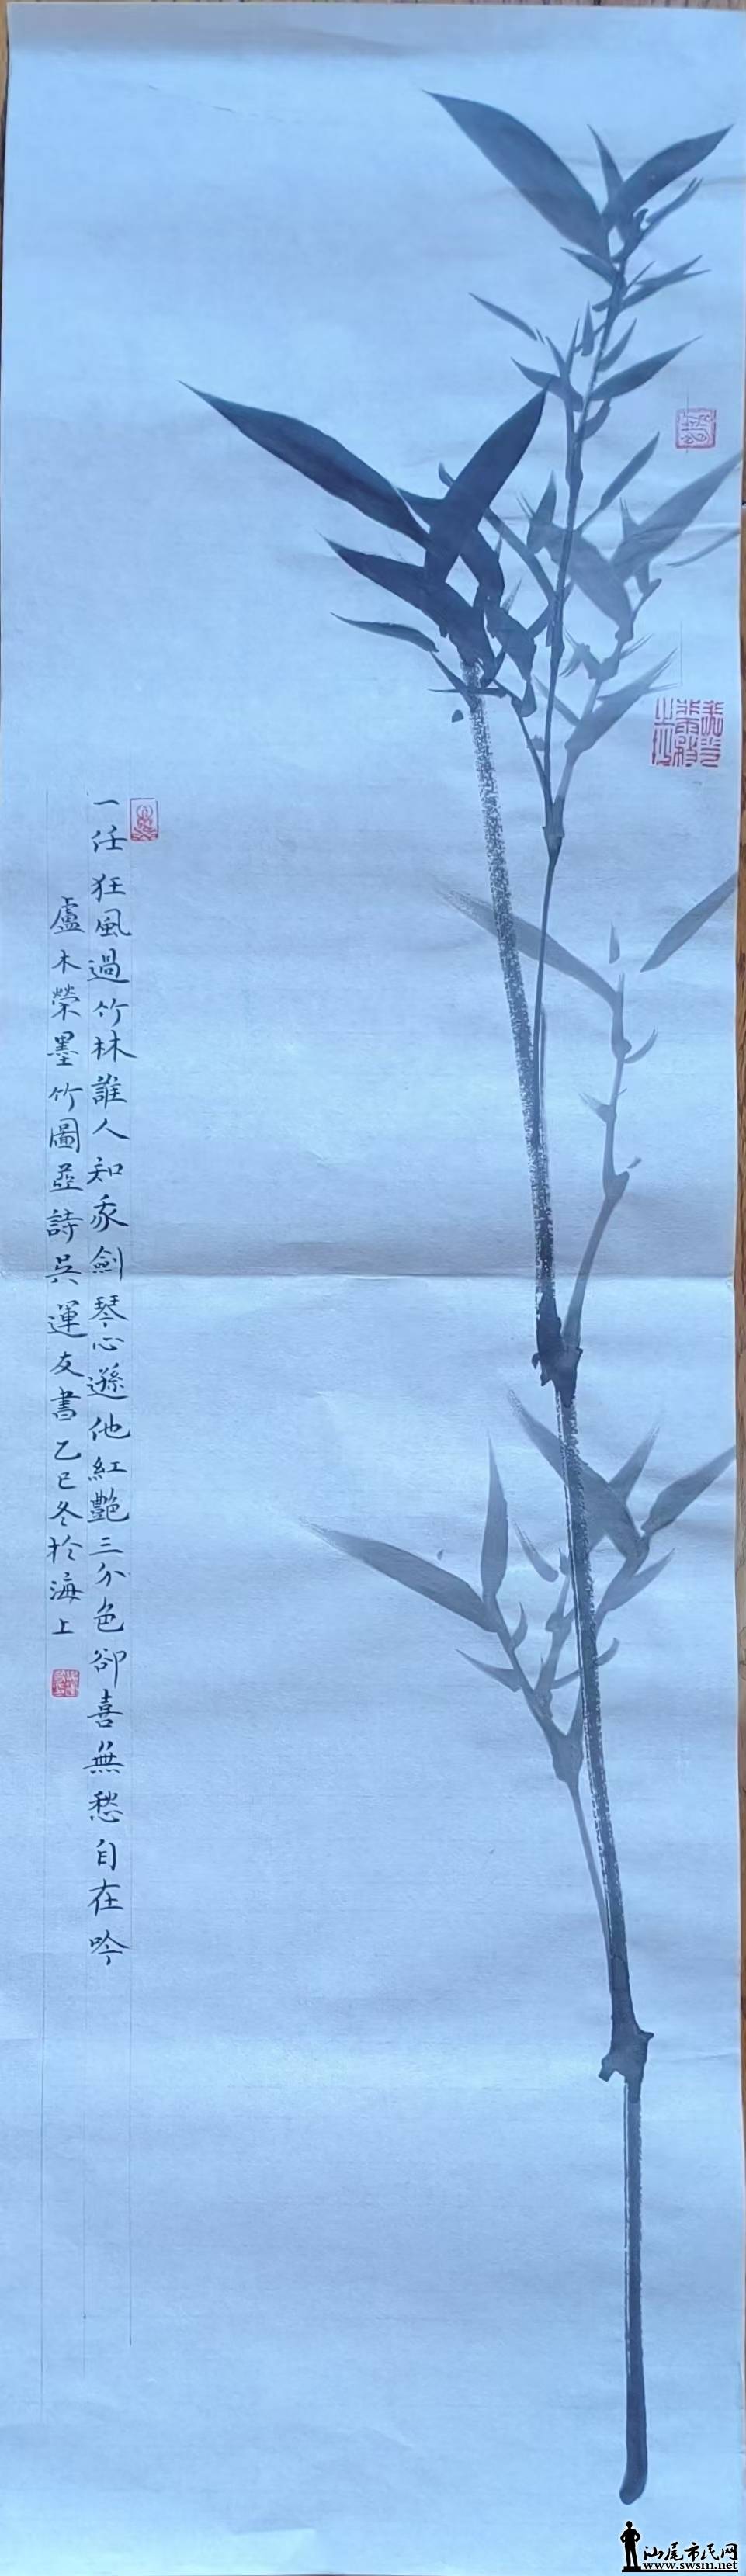 一任狂風過竹林誰人知我劍琴心遜他紅艷三分色卻喜無愁自在吟
盧木榮墨竹圖並詩吳運友書乙巳冬於海上
汕尾市民网
www.swsm.net